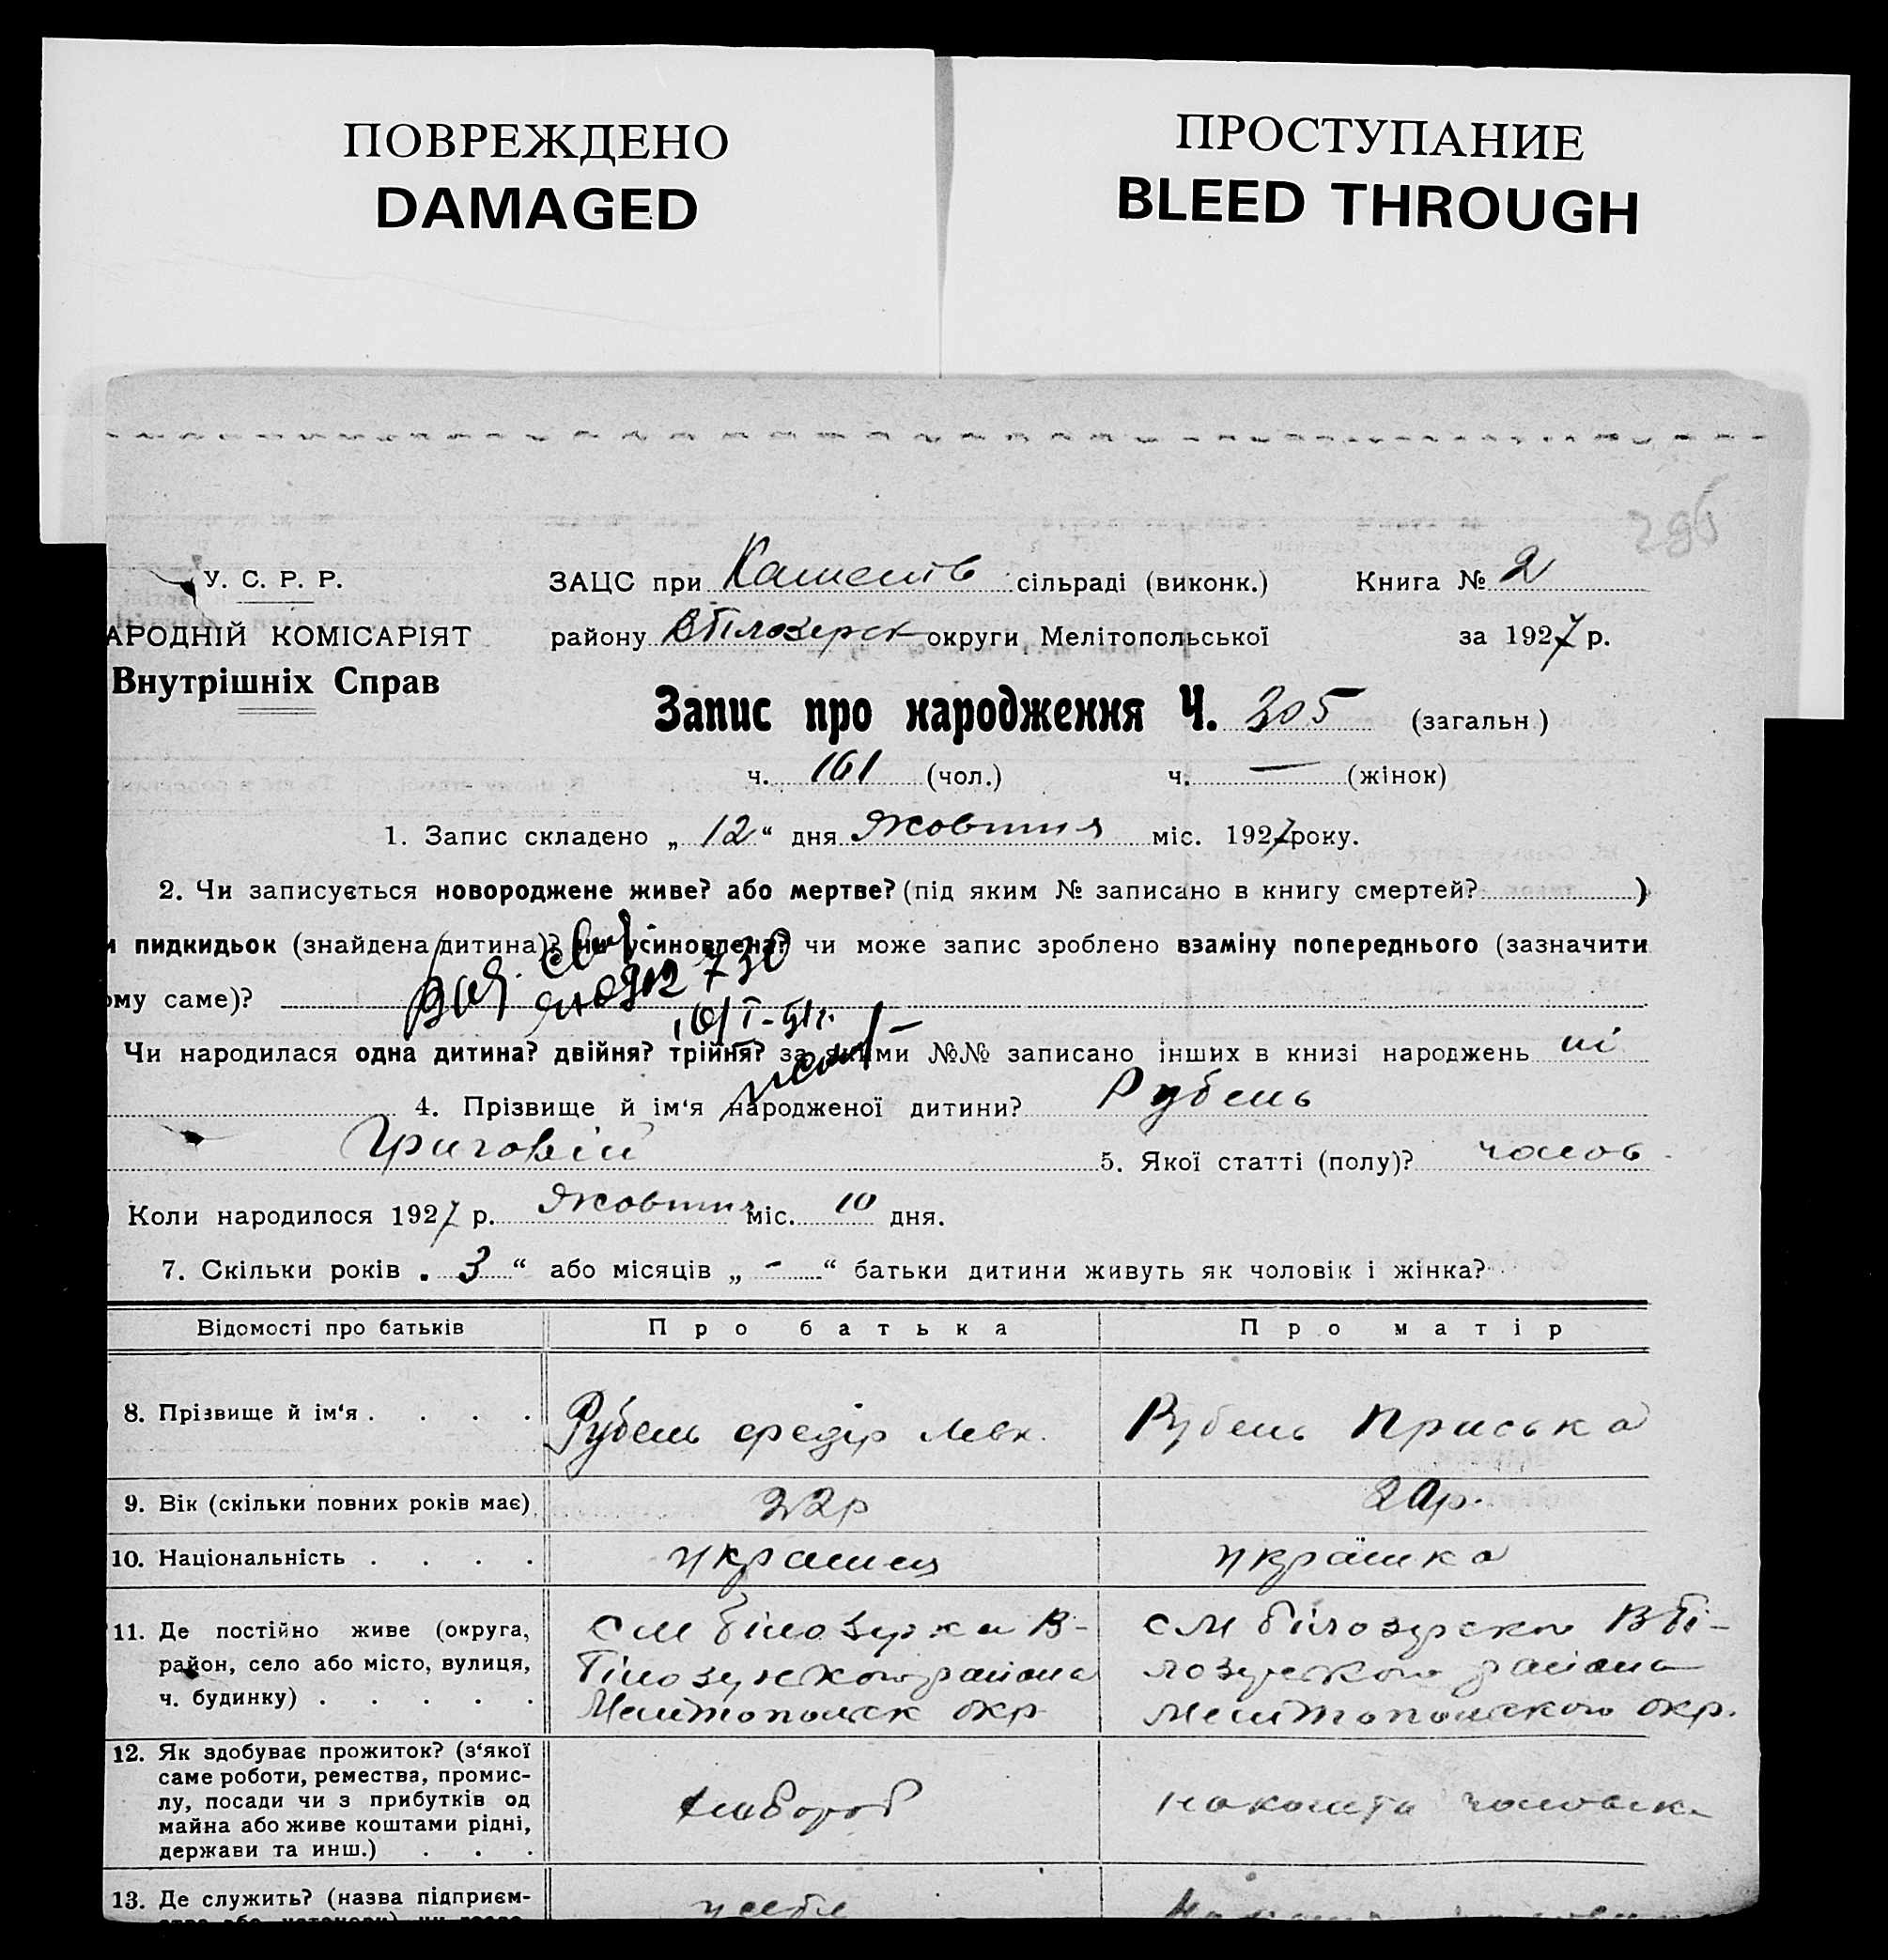 ПОВРЕЖДЕНО
DAMAGED
ПРОСТУПАНИЕ
BLEED THROUGH
296
У. С. Р. Р.
АРОДНІЙ КОМІСАРІЯТ
Внутрішніх Справ
ЗАЦС при Каменів сільраді (виконк.) Книга № 2
району ВБілозерск округи Мелітопольської за 1927 р.
Запис про народження Ч. 305 (загальн.)
ч. 161 (чол.) ч. — (жінок)
1. Запис складено „ 12 “ дня Жовтня міс. 1927 року.
2. Чи записується новороджене живе? або мертве? (під яким № записано в книгу смертей? )
и пидкидьок (знайдена дитина)? чи усиновлена? чи може запис зроблено взаміну попереднього (зазначити
ому саме)?
730
Чи народилася одна дитина? двійня? трійня? за якими №№ записано інших в книзі народжень ні
4. Прізвище й ім‘я народженої дитини? Рубель
Григорій 5. Якої статті (полу)? чолов
Коли народилося 1927 р. Жовтня міс. 10 дня.
7. Скільки років „ 3 “ або місяців „ - “ батьки дитини живуть як чоловік і жінка?
Відомості про батьків Про батька Про матір
8. Прізвище й ім‘я . . . . Рубель Федір Рубель Приська
9. Вік (скільки повних років має) 22р 20р.
10. Національність . . . . украинц украінка
11. Де постійно живе (округа,
район, село або місто, вулиця,
ч. будинку) . . . . .
см Білозерка В-
Білозерского района
Мелитопольск окр
см Білозерска ВБі-
лозерского района
Мелитопольского окр.
12. Як здобуває прожиток? (з‘якої
саме роботи, ремества, промис-
лу, посади чи з прибутків од
майна або живе коштами рідні,
держави та инш.) . . .
хлібороб
на кошти чоловіка
13. Де служить? (назва підприєм-
у себе